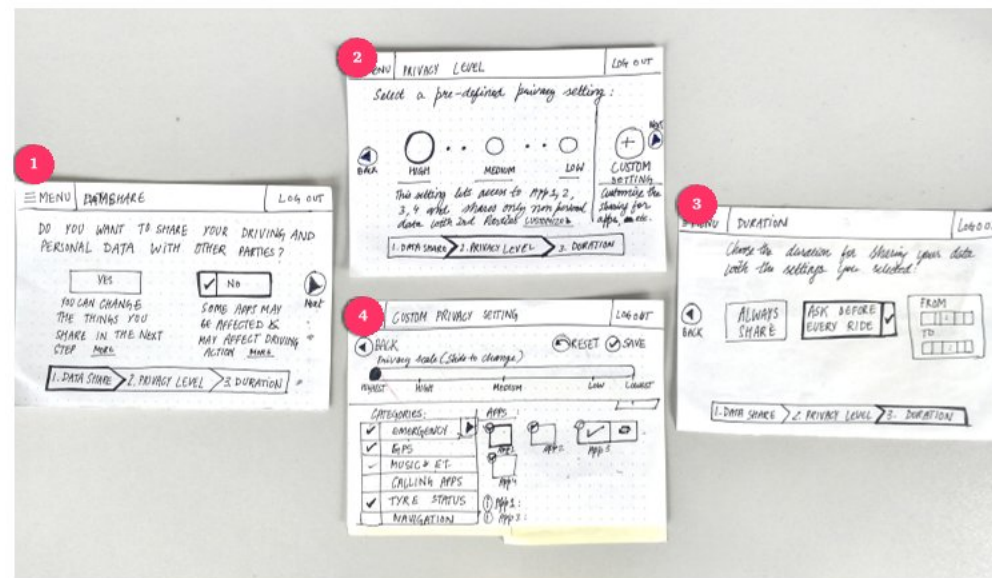 1
≡ MENU DATASHARE LOG OUT
DO YOU WANT TO SHARE YOUR DRIVING AND
PERSONAL DATA WITH OTHER PARTIES?
YES
✓ NO
Next
YOU CAN CHANGE
THE THINGS YOU
SHARE IN THE NEXT
STEP MORE
SOME APPS MAY
BE AFFECTED &
MAY AFFECT DRIVING
ACTION MORE
1. DATA SHARE 2. PRIVACY LEVEL 3. DURATION
2
MENU PRIVACY LEVEL LOG OUT
Select a pre-defined privacy setting:
BACK
HIGH MEDIUM LOW
+
Next
CUSTOM
SETTING
This setting lets access to App 1, 2,
3, 4 and shares only non personal
data with 2nd Parties CUSTOMIZE
Customize the
sharing for
apps, etc.
1. DATA SHARE 2. PRIVACY LEVEL 3. DURATION
3
MENU DURATION LOG OUT
Choose the duration for sharing your data
with the settings you selected:
BACK
ALWAYS
SHARE
ASK BEFORE
EVERY RIDE ✓
FROM
TO
1. DATA SHARE 2. PRIVACY LEVEL 3. DURATION
4
CUSTOM PRIVACY SETTING LOG OUT
BACK RESET ✓ SAVE
Privacy scale (slide to change)
HIGHEST HIGH MEDIUM LOW LOWEST
CATEGORIES:
✓ EMERGENCY
✓ GPS
✓ MUSIC & ET.
CALLING APPS
✓ TYRE STATUS
NAVIGATION
APPS:
App 1 App 2 App 3
App 4
App 1:
App 3: